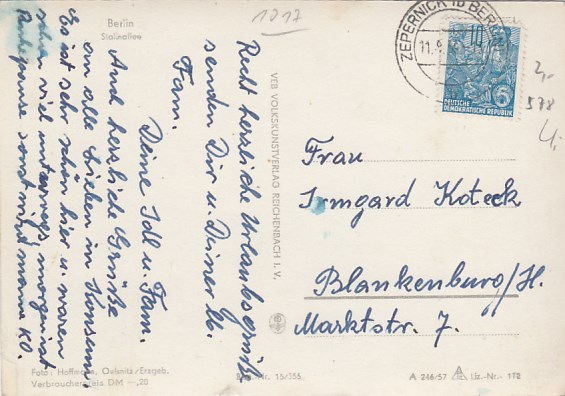 1017
Berlin
Stalinallee
Recht herzliche Urlaubsgrüße
senden Dir u. Deiner lb.
Fam.
Deine Idl u. Fam.
Auch herzliche Grüße
an alle Lieben in
Es ist sehr schön hier u. waren
schon viel unterwegs, morgen ist
Ruhepause sonst wird mama KO.
Foto: Hoffmann, Oelsnitz/Erzgeb.
Verbraucherpreis DM –,20
VEB VOLKSKUNSTVERLAG REICHENBACH I. V.
Best.-Nr. 15/355
A 246/57
Liz.-Nr. 172
ZEPERNICK
11.9.
10
DEUTSCHE
DEMOKRATISCHE REPUBLIK
2,-
578
4,-
Frau
Irmgard Koteck
Blankenburg/H.
Marktstr. 7.